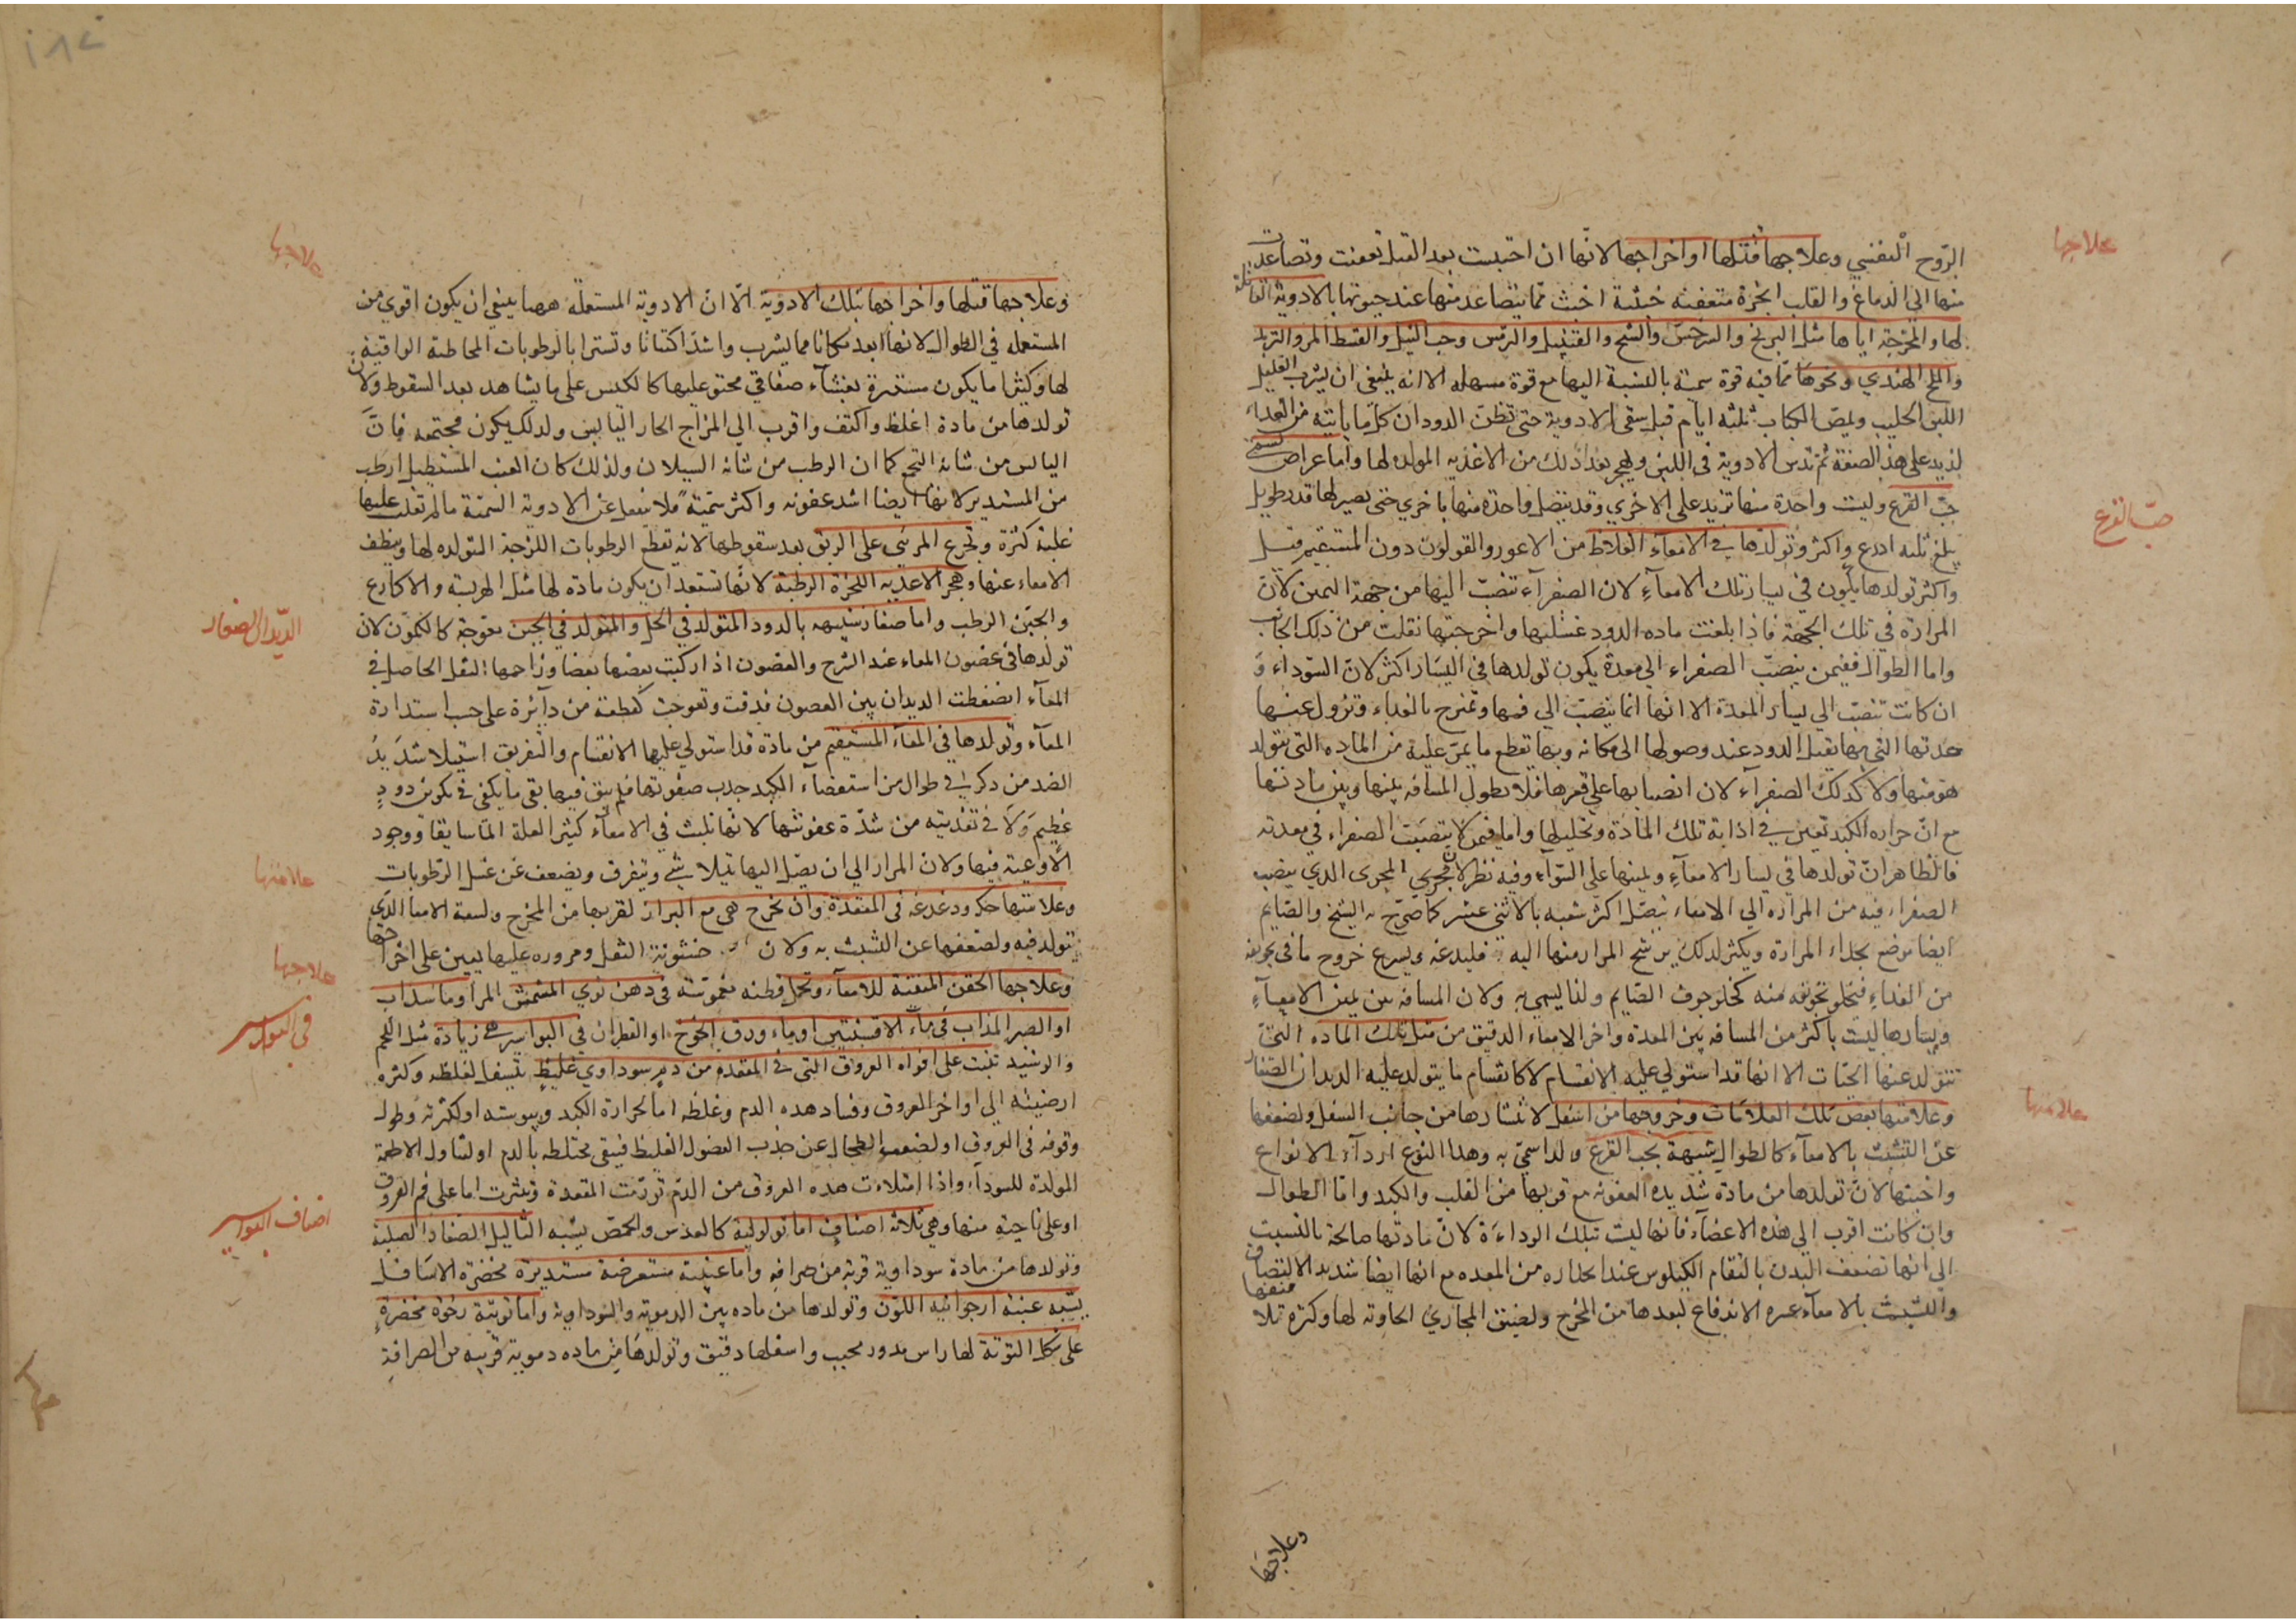 علاجها
الروح النفسي وعلاجها قتلها او اخراجها لانها ان احتبست بعد القتل تعفنت وتصاعدت
منها الى الدماغ والقلب ابخرة متعفنة خبيثة اخبث مما يتصاعد منها عند حيوتها بالادوية القاتلة
لها والمخرجة اياها مثل البرنج والسرخس والشيح والقنبيل والترمس وحب النيل والقسط المر والتربد
والملح الهندي ونحوها مما فيه قوة سمية بالنسبة اليها مع قوة مسهلة الا انه ينبغي ان يشرب العليل
اللبن الحليب ويمص الكباب ثلثة ايام قبل سقي الادوية حتى تظن الدود ان كل ما ياتيه من الغداء
لذيد على هذ الصفة ثم تدس الادوية في اللبن ويهجر بعد ذلك من الاغذيه المولده لها واما عراض تسمى
حب القرع
حب القرع وليست واحدة منها تزيد على الاخري وقد يتصل واحدة منها باخري حتى يصير لها قدر طويل
يبلغ ثلثه اذرع واكثر وتولدها في الامعاء الغلاظ من الاعور والقولون دون المستقيم قيل
واكثر تولدها يكون في يسار تلك الامعاء لان الصفرآء تنصب اليها من جهة اليمين لان
المرارة في تلك الجهة فاذا بلغت ماده الدود غسلتها واخرجتها نقلت من ذلك الجانب
واما الطوال ففيمن ينصب الصفراء الى معدة يكون تولدها في اليسار اكثر لان السوداء و
ان كانت تنصب الي يسار المعدة الا انها انما ينصب الي فمها وتمتزج بالغداء وتزول عنها
حدتها التي بها تقتل الدود عند وصولها الى مكانه وبها تقطع ما يمر عليه من الماده التي يتولد
هو منها ولا كذلك الصفرآء لان انصبابها على قعرها فلا يطول المسافه بينها وبين مادتها
مع ان حراره الكبد تعين في اذابة تلك المادة وتحليلها واما فيمن لا ينصب الصفراء في معدته
فالظاهر ان تولدها في يسار الامعاء ويمينها على السواء وفيه نظر لان مجرى المجرى الدي ينصب
الصفراء فيه من المراره الي الامعاء يتصل اكثر شعبه بالاثني عشر كما صرح به الشيخ والصايم
ايضا موضع بحداء المرارة ويكثر لدلك يرشح المرار منها اليه فيلدغه ويسرع خروج ما في تجويفه
من الغداء فيخلو تجويفه منه كخلو جوف الصايم ولذا يسمي به ولان المسافه بين يمين الامعاء
ويسارها ليست باكثر من المسافه بين المعدة واخر الامعاء الدقيق من مثل تلك الماده التي
تتولد عنها الحيات الا انها قد استولي عليه الانقسام لا كانقسام ما يتولد عليه الديدان الصغار
علامتها
وعلامتها بعض تلك العلامات وخروجها من اسفل لانتشارها من جانب السفل ولضعفها
عن التشبث بالامعآء كالطوال شبيهة بحب القرع ولدا سمي به وهذا النوع اردآء الانواع
واخبثها لان تولدها من مادة شديده العفونه مع قربها من القلب والكبد واما الطوال
وان كانت اقرب الي هذه الاعضآء فانها ليست بتلك الرداءة لان مادتها صالحة بالنسبت
الى انها تضعف البدن بالتقام الكيلوس عند انحداره من المعده مع انها ايضا شديد الالتصاق
والتشبث بالامعآء عسره الاندفاع لبعدها من المخرج ولضيق المجاري الحاويه لها وكثرة تلا
وعلاجها
علاجها
وعلاجها قتلها واخراجها بتلك الادوية الا ان الادوية المستعملة ههنا ينبغي ان يكون اقوي من
المستعمله في الطوال لانها ابعد مكانا مما يشرب واشد اكتنانا وتسترا بالرطوبات المخاطية الواقية
لها وكثيرا ما يكون مستترة بغشآء صفاقي محتو عليها كالكيس على ما يشاهد بعد السقوط ولان
تولدها من مادة اغلظ واكثف واقرب الي المزاج الحار اليابس ولدلك يكون مجتمعه فان
اليابس من شانه التجمع كما ان الرطب من شانه السيلان ولذلك كان العنب المستطيل ارطب
من المستدير لانها ايضا اشد عفونه واكثر سمية فلا ينفعل عن الادوية السمية مالم تغلب عليها
غلبة كثرة وتجرع المرئى على الريق بعد سقوطها لانه تقطع الرطوبات اللزجة المتولده لها وينظف
الامعاء عنها وهجر الاغديه اللزجة الرطبة لانها تستعد ان يكون مادة لها مثل الهريسة والاكارع
الديدان الصغار
والجبن الرطب واما صغار شبيهه بالدود المتولد في الخل والمتولد في الجبن معوجة كالكمون لان
تولدها في غضون المعاء عند الشرج والغضون اذا ركبت بعضها بعضا وزاحمها الثفل الحاصل في
المعآء انضغطت الديدان بين الغصون فدقت وتعوجت كقطعة من دآئرة على حسب استدارة
المعآء وتولدها في المعاء المستقيم من مادة قد استولي عليها الانقسام والتفريق استيلا شديد
الضد من دكر في طوال من استقصآء الكبد جذب صفوتها فلم يبق فيها بقي ما يكفي في تكوين دود
عظيم ولا في تغذيته من شدة عفونتها لانها تلبث في الامعآء كثير العلة الما ساريقا ووجود
علامتها
الاوعية فيها ولان المرار الي ان يصل اليها يتلاشى ويتفرق ويضعف عن غسل الرطوبات
وعلامتها حكه ودغدغه في المقعدة وان تخرج هي مع البراز لقربها من المخرج ولسعة الامعا الدي
تتولد فيه ولضعفها عن التشبث به ولان خشونة الثفل ومروره عليها يعين على اخراجها
علاجها
وعلاجها الحقن المنقية للامعآء وتحمل قطنه مغموسة في دهن نوي المشمش المر او ماء سداب
في البواسير
او الصبر المذاب في ماء الافسنتين او ماء ورق الخوخ او القطران في البواسير هى زيادة مثل اللحم
والرشيد تنبت على افواه العروق التي في المقعده من دم سوداوي غليظ يتسفل لغلظه وكثره
ارضيته الي اواخر العروق وفساد هده الدم وغلظه اما لحرارة الكبد ويبوسته او لكثرته وطول
وقوفه في العروق او لضعف الطحال عن جذب الفضول الغليظ فيبقى مختلطه بالدم او لتناول الاطعمة
المولدة للسودآء واذا امتلات هده العروق من الدم تورمت المقعدة وبثرت اما على فم العروق
اصناف البواسير
او على ناحية منها وهي ثلاثه اصناف اما ثولولية كالعدس والحمص يشبه الثاليل الصغار الصلبة
وتولدها من مادة سوداوية قريبة من صرافه واما عنبية مستعرضة مستديرة مخضرة الاسافل
يشبه عنبة ارجوانيه اللون وتولدها من ماده بين الدمويه والسوداوية واما توتية رخوة مخضرة
على شكل التوتة لها راس مدور محبب واسفلها دقيق وتولدها من ماده دموية قريبه من الصرافة